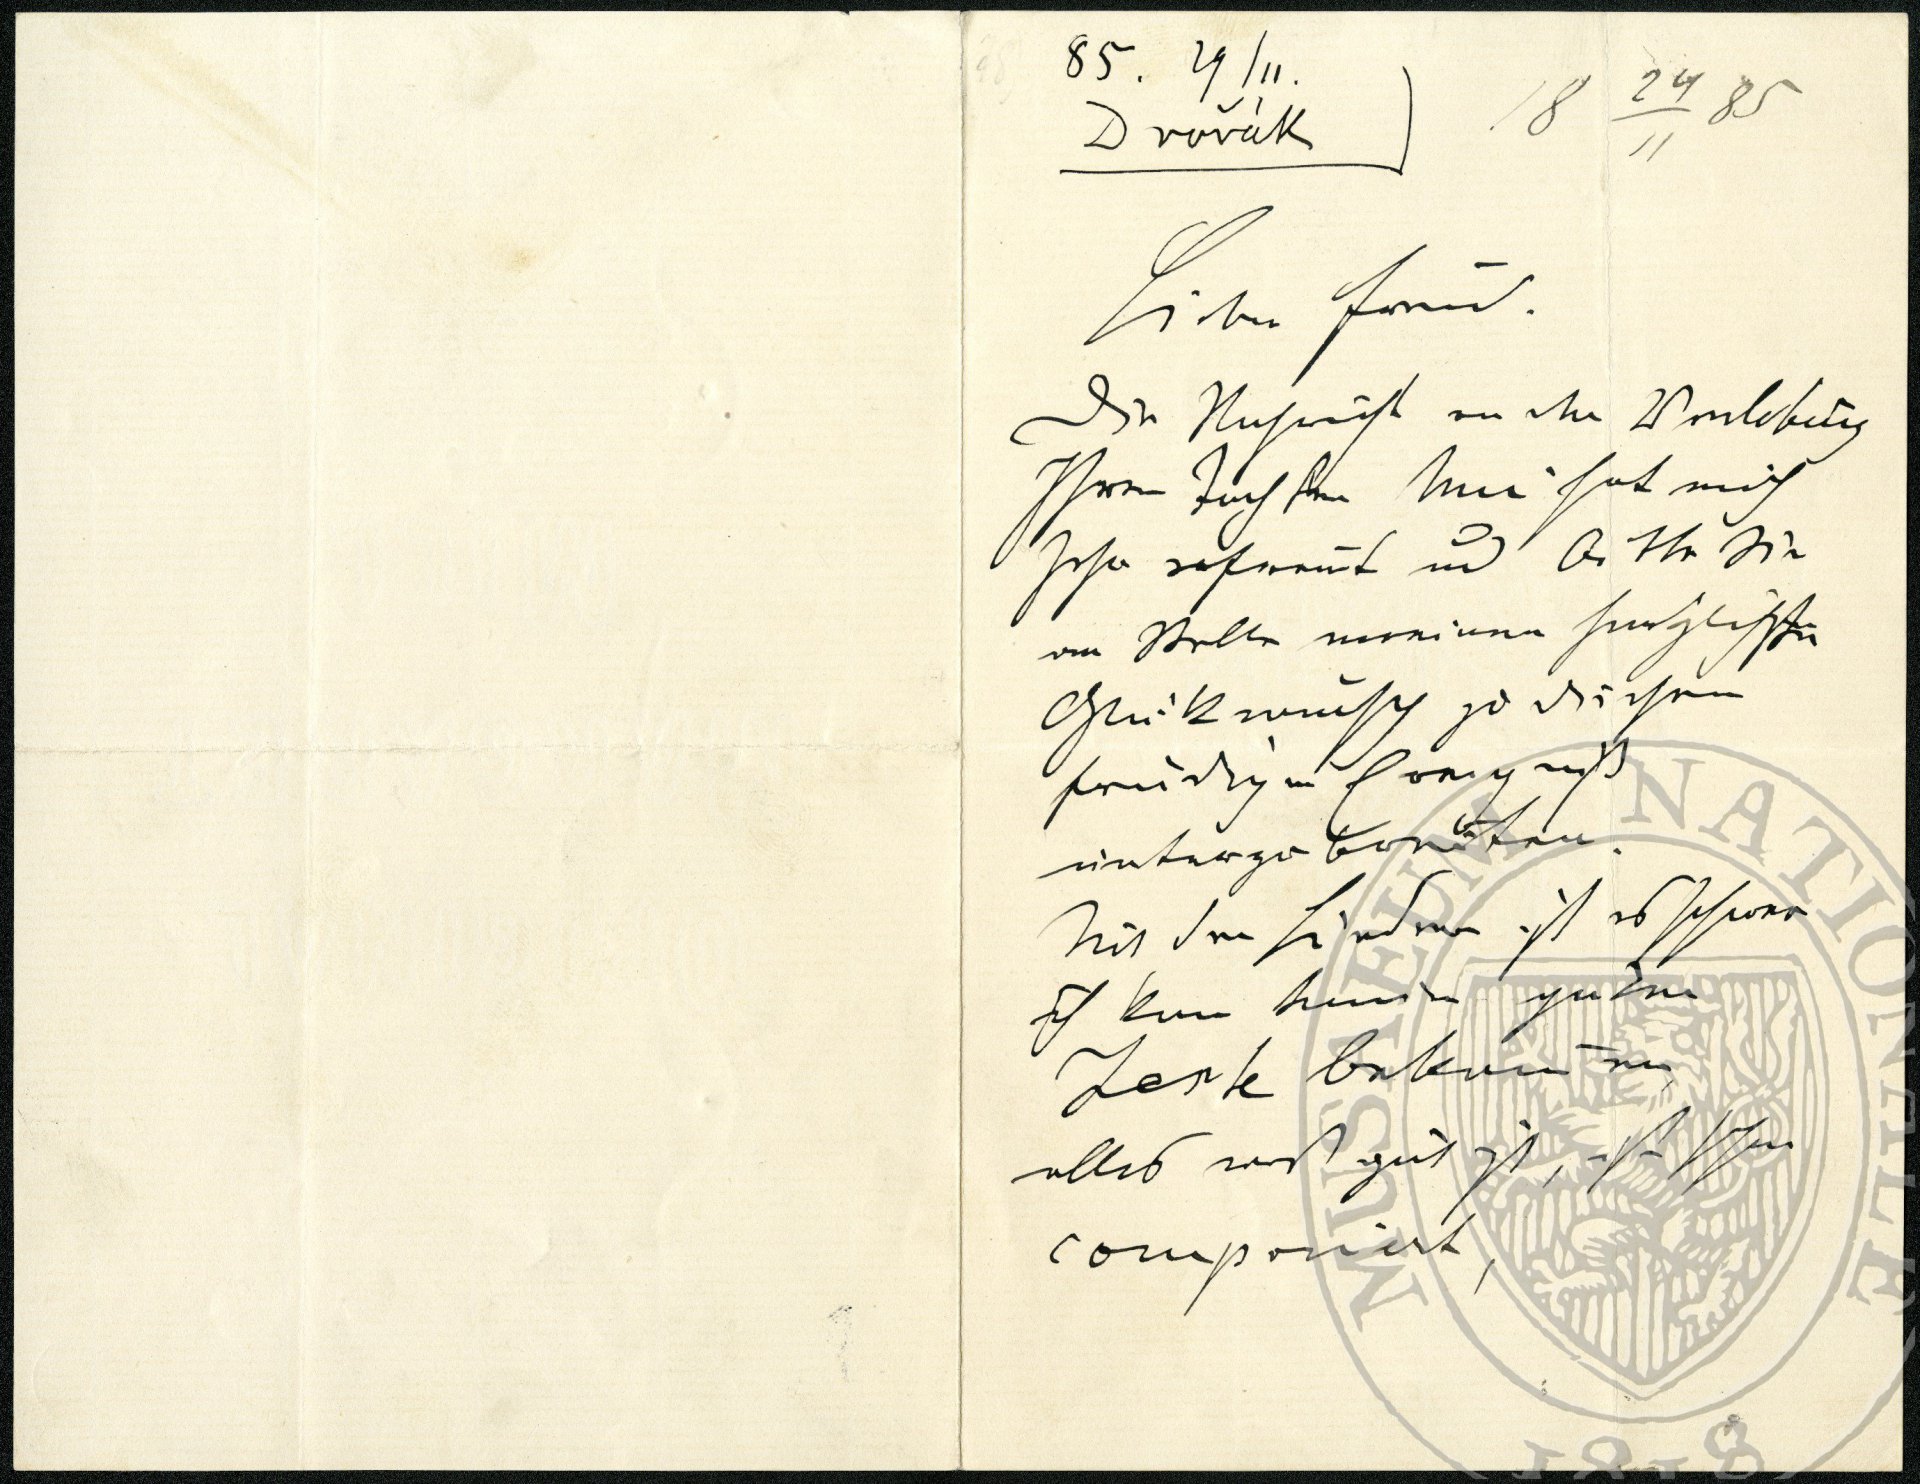 85. 29/11.
Dvořák
18 29/11 85
Lieber Freund.
Die Nachricht von der Verlobung
Ihrer Tochter Mimi hat mich
sehr erfreut und bitte Sie
meinen herzlichsten
Glückwunsch zu diesem
freudigen Ereigniß
Mit den Liedern ist es schwer
ich kann keinen guten
Texte bekommen,
alles was gut ist, ist schon
componiert,
MUSAEUM NATIONALE
1818